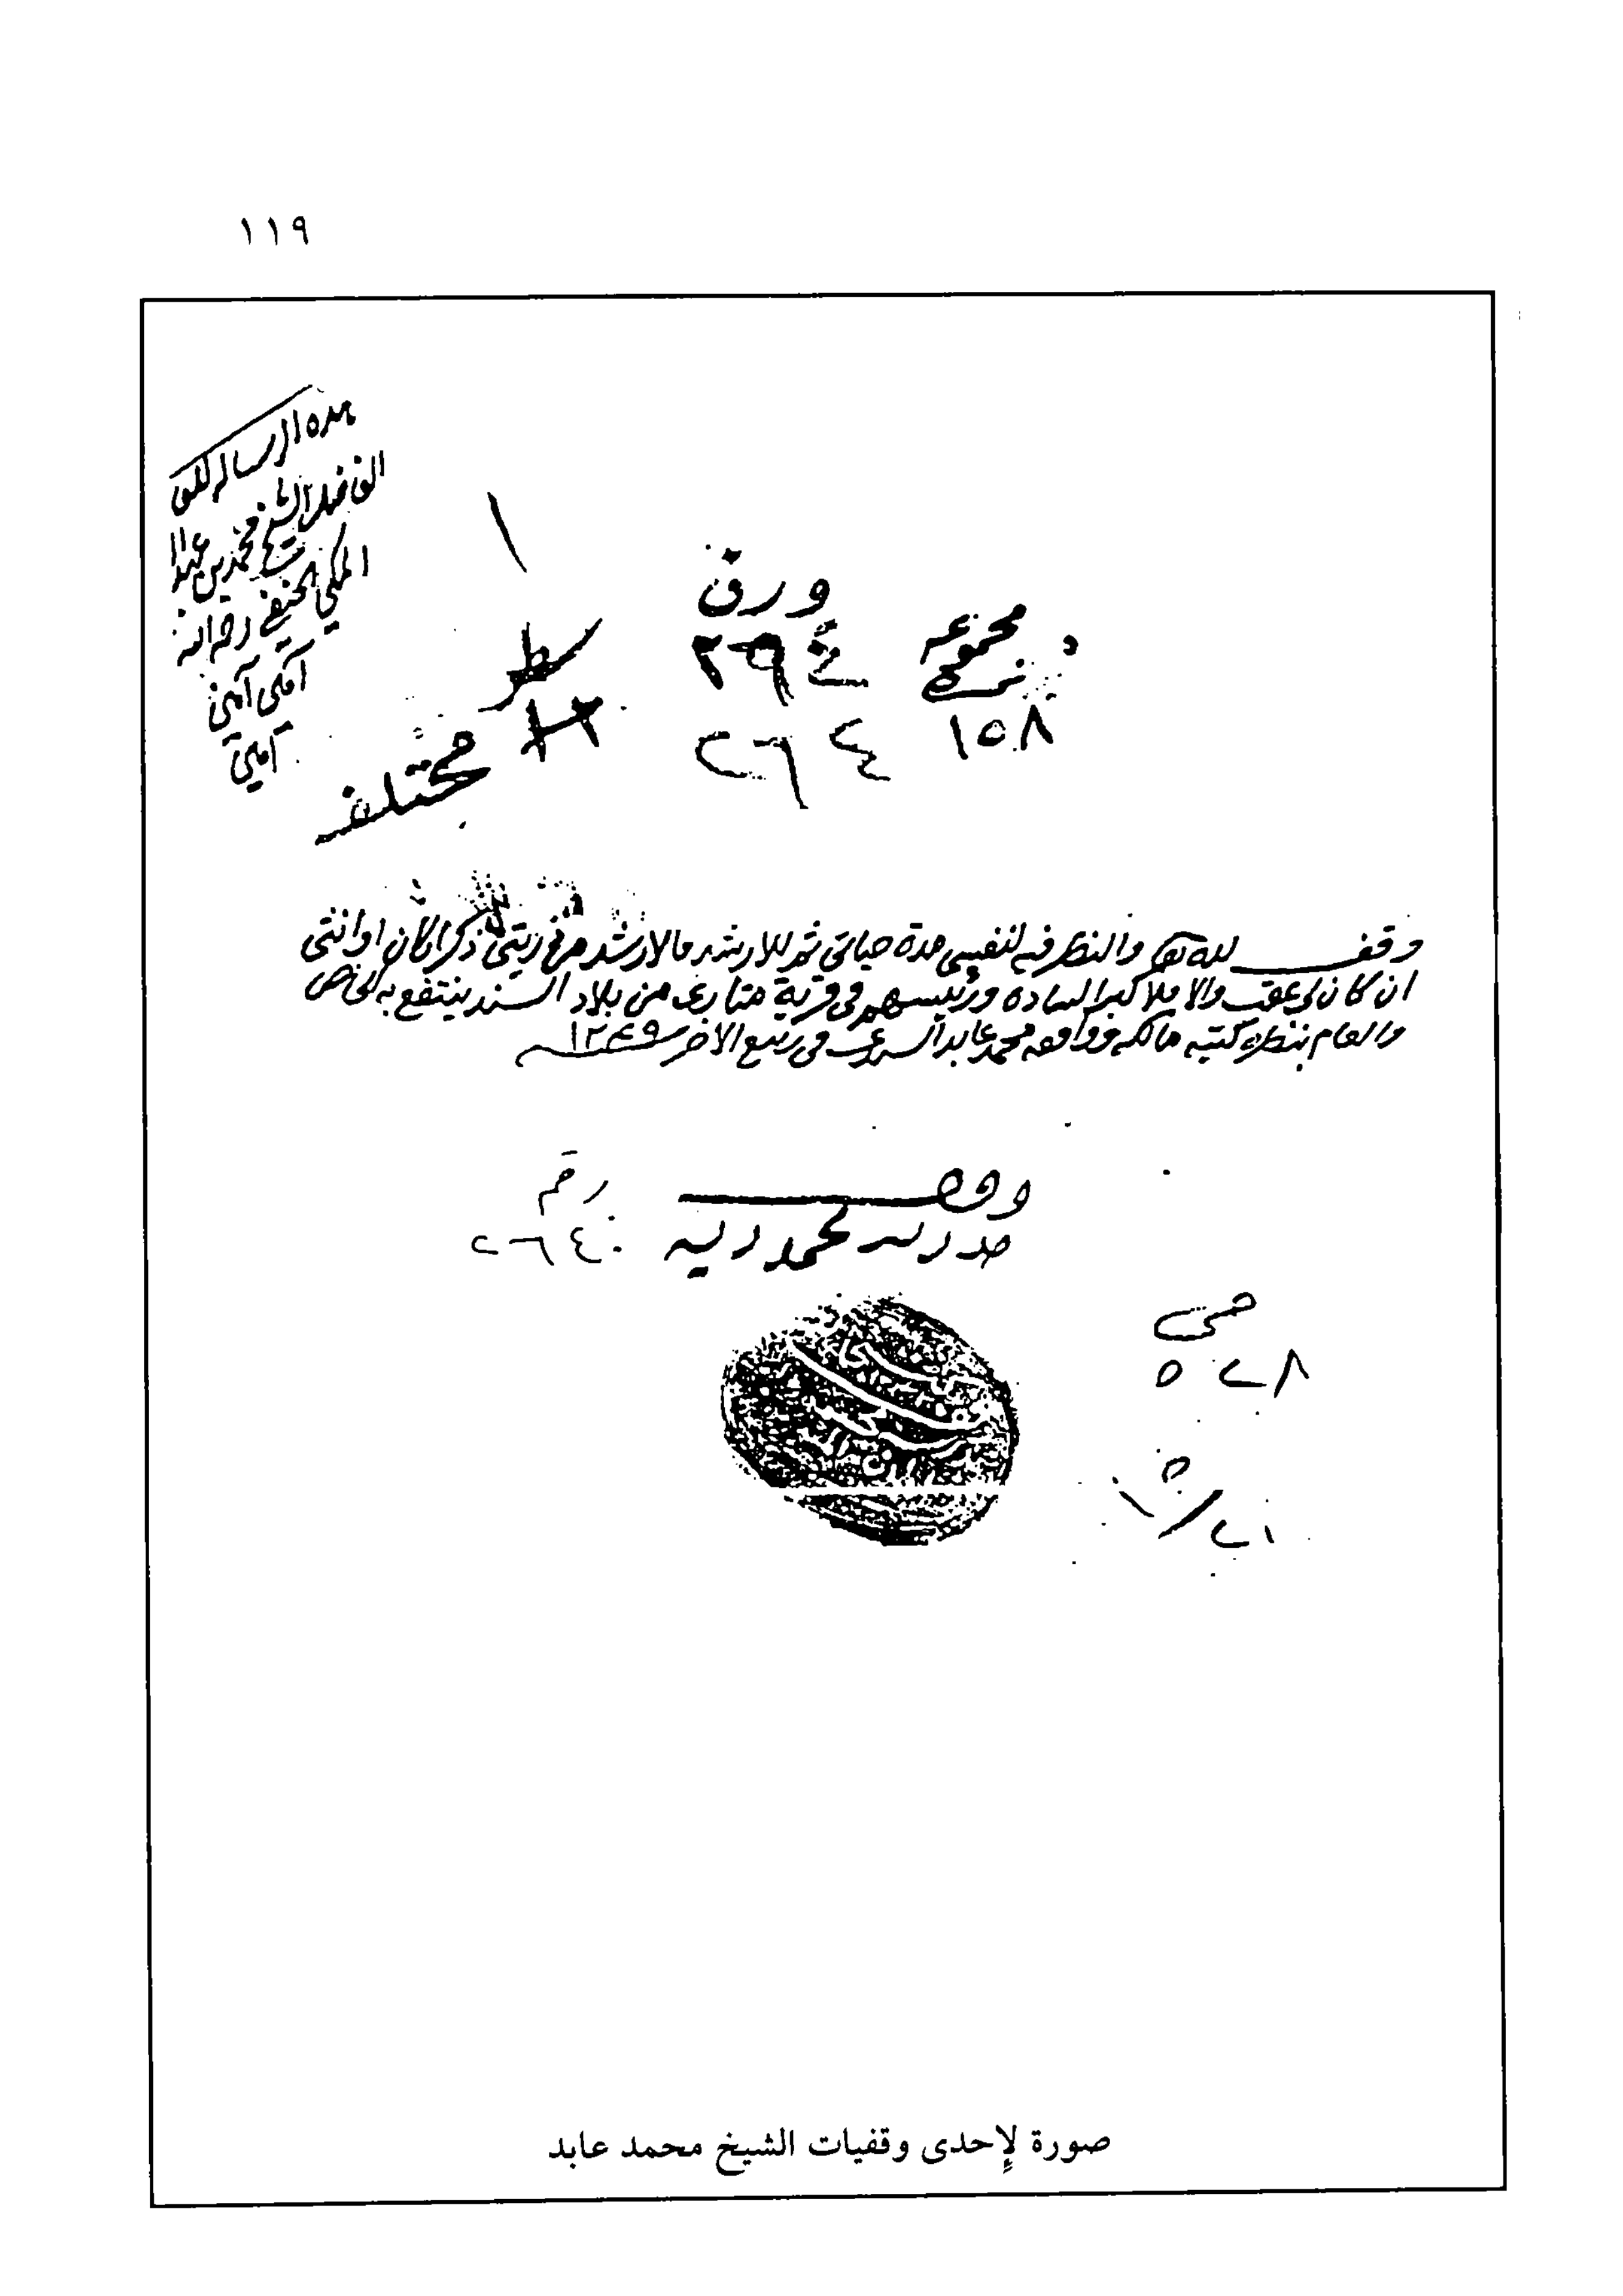 ١١٩
هذه الرسالة
الفاضل الشيخ محمد بن
المكي الحنفي رحمه الله
آمين آمين
آمين
١
ورق
٢٩٤
٢٦٤
مجموعه
نمره
١٥٨
سطر
مختلف
وقف لله تعالى والنظر فيه لنفسي مدة حياتي ثم للارشد فالارشد من ذريتي ذكرا كان او انثى
ان كان لي عقب والا فلاكبر الساده ورئيسهم في قرية متاري من بلاد السند ينتفع به الخاص
والعام بنظره كتبه مالكه وواقفه محمد عابد السندي في ربيع الاخر سنه ١٢٤٩
وقف
مدرسه محموديه
رقم
٢٦٤٠
٥٢٨
صورة لإحدى وقفيات الشيخ محمد عابد